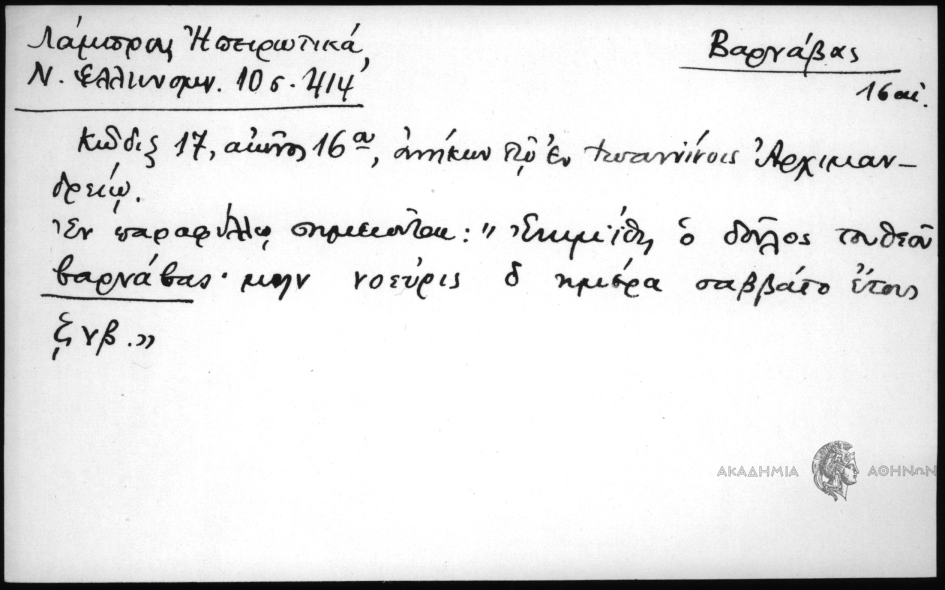 Λάμπρος Ἠπειρωτικά,
Ν. Ἑλληνομν. 10 σ. 414
Βαρνάβας
16 αἰ.
Κῶδιξ 17, αἰῶνος 16ου, ἀνήκων τῷ ἐν Ἰωαννίνοις Ἀρχιμαν-
δρείῳ.
Ἐν παραφύλλῳ σημειοῦται: "Ἐκιμείθη ὁ δοῦλος του θεοῦ
βαρνάβας· μην νοεύρις δ ημέρα σαββάτο ἔτους
ζνβ."
ΑΚΑΔΗΜΙΑ ΑΘΗΝΩΝ